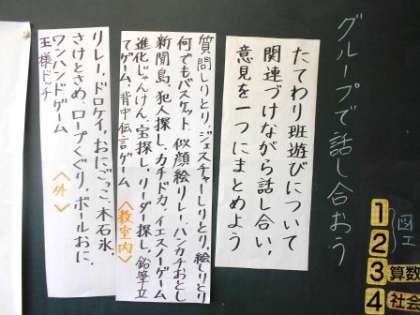 グループで話し合おう
たてわり班遊びについて
関連づけながら話し合い、
意見を一つにまとめよう
質問しりとり、ジェスチャーしりとり、絵しりとり
何でもバスケット、似顔絵リレー、ハンカチおとし
新聞島、犯人探し、カチドカ、イエスノーゲーム
進化じゃんけん、宝探し、リーダー探し、鉛筆立
てゲーム、背中伝言ゲーム
〈教室内〉
リレー、ドロケイ、おにごっこ、木石氷、
さけとさめ、ロープくぐり、ボールおに、
ワンハンドゲーム
王様ドッチ
〈外〉
1 図工
2
3 算数
4 社会